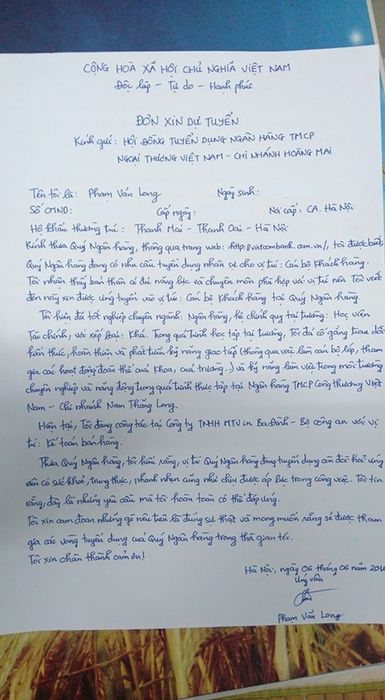 CỘNG HOÀ XÃ HỘI CHỦ NGHĨA VIỆT NAM
Độc lập - Tự do - Hạnh phúc
ĐƠN XIN DỰ TUYỂN
Kính gửi: HỘI ĐỒNG TUYỂN DỤNG NGÂN HÀNG TMCP
NGOẠI THƯƠNG VIỆT NAM - CHI NHÁNH HOÀNG MAI
Tên tôi là: Phạm Văn Long Ngày sinh:
Số CMND: Cấp ngày: Nơi cấp: CA. Hà Nội
Hộ khẩu thường trú: Thanh Mai - Thanh Oai - Hà Nội
Kính thưa Quý Ngân hàng, thông qua trang web: http://vietcombank.com.vn/, tôi được biết
Quý Ngân hàng đang có nhu cầu tuyển dụng nhân sự cho vị trí: Cán bộ Khách hàng.
Tôi nhận thấy bản thân có đủ năng lực và chuyên môn phù hợp với vị trí nên Tôi viết
đơn này xin được ứng tuyển vào vị trí: Cán bộ Khách hàng tại Quý Ngân hàng.
Tôi hiện đã tốt nghiệp chuyên ngành: Ngân hàng, hệ chính quy tại trường: Học viện
Tài chính, với xếp loại: Khá. Trong quá trình học tập tại trường, Tôi đã cố gắng trau dồi
kiến thức, hoàn thiện và phát triển kỹ năng giao tiếp (thông qua việc làm cán bộ lớp, tham
gia các hoạt động đoàn thể của Khoa, của trường.) và kỹ năng làm việc trong môi trường
chuyên nghiệp và năng động trong quá trình thực tập tại Ngân hàng TMCP Công thương Việt
Nam - Chi nhánh Nam Thăng Long.
Hiện tại, Tôi đang công tác tại Công ty TNHH MTV in Ba Đình - Bộ công an với vị
trí: Kế toán bán hàng.
Thưa Quý Ngân hàng, tôi hiểu rằng, vị trí Quý Ngân hàng đang tuyển dụng cần đòi hỏi ứng
viên có sức khoẻ, trung thực, nhanh nhẹn cũng như chịu được áp lực trong công việc. Tôi tin
rằng, đây là những yêu cầu mà tôi hoàn toàn có thể đáp ứng.
Tôi xin cam đoan những gì nêu trên là đúng sự thật và mong muốn rằng sẽ được tham
gia các vòng tuyển dụng của Quý Ngân hàng trong thời gian tới.
Tôi xin chân thành cảm ơn!
Hà Nội, ngày 06 tháng 06 năm
Ứng viên
Phạm Văn Long